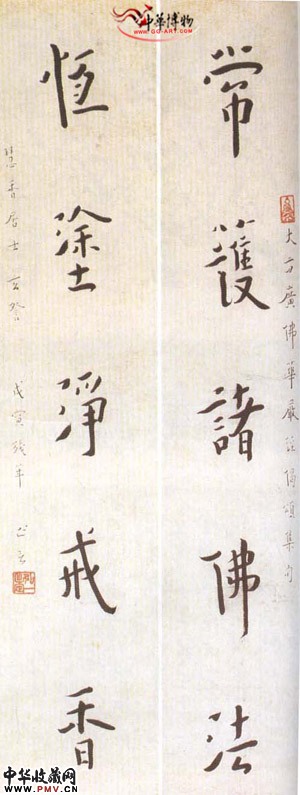 中華博物
www.gg-art.com
大方廣佛華嚴經偈頌集句
常護諸佛法
恆塗淨戒香
慧香居士玄督
戊寅殘年
中华收藏网
www.PMV.CN